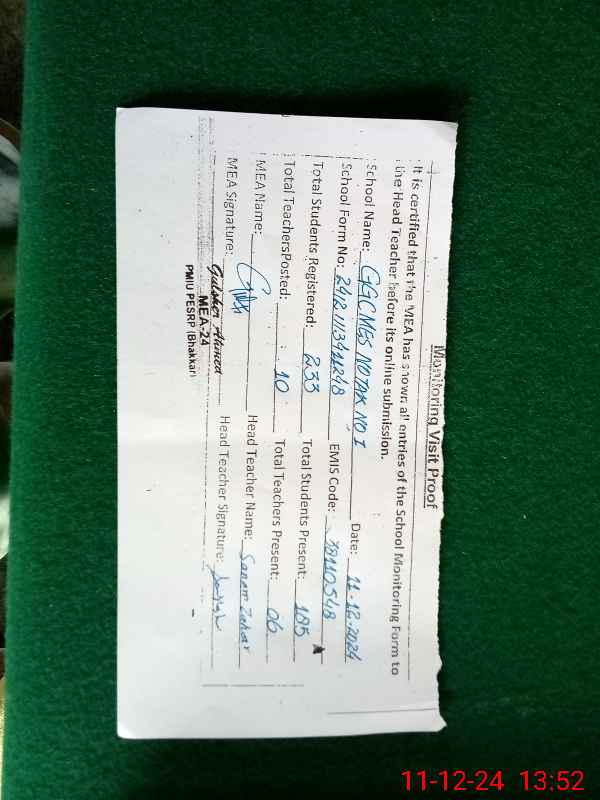 Monitoring Visit Proof
It is certified that the MEA has shown all entries of the School Monitoring Form to
the Head Teacher before its online submission.
School Name: GGCMES NOTAK NO 1 Date: 11-12-2024
School Form No: EMIS Code: 38110548
Total Students Registered: 233 Total Students Present: 185
Total TeachersPosted: 10 Total Teachers Present: 06
MEA Name: Head Teacher Name: Sanam Zahar
MEA Signature: Head Teacher Signature:
Gulsher Ahmed
MEA-24
PMIU PESRP (Bhakkar)
11-12-24 13:52